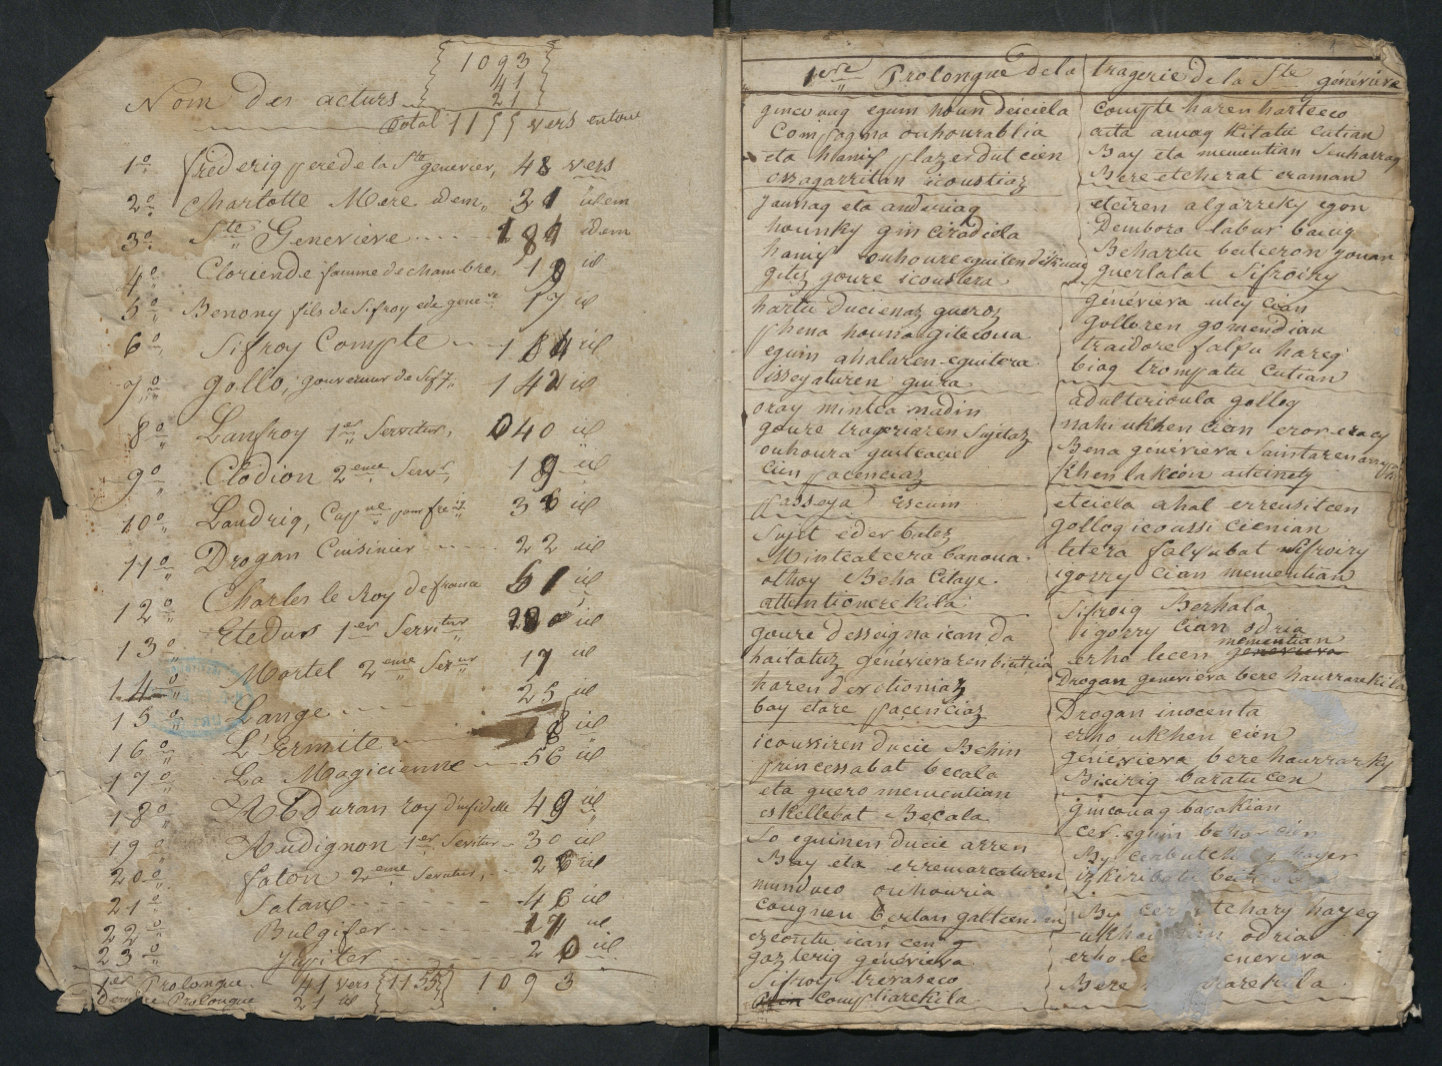 1093
41
21
Nom Des acturs
Total 1155 vers entout
1º frederiq pere de la Ste genevier, 48 vers
2º Charlotte Mere idem 31 idem
3º Ste Genevieve 184 idem
4º Cloriende famme de chambre, 19 id
5º Benony fils de Sifroy ede geneve 17 id
6º Sifroy Compte 184 id
7º Gollo, gouvernur de Sifr 142 id
8º Lanfroy 1er Servitur, 040 id
9º Clodion 2eme Servr 19 id
10º Landriq, 36 id
11º Drogan Cuisinier 22 id
12º Charles le Roy de france 61 id
13º Etedus 1er Servitur id
14º Mortel 2eme Serur 17 id
15º L'ange 25 id
16º L'Ermite 8 id
17º La Magicienne 56 id
18º Abduran roy d'infidelle 49 id
19º Audignon 1er Servitur 30 id
20º faton 2eme Servitur, 26 id
21º Satan 46 id
22º Bulgifer 17 id
23º Jupiter 20 id
1er Prolongue 41 vers 1155 1093
Dernier Prolongue 21 id
1ere Prolongue de la tragerie de la Ste généviéva
ginco uaq eguin noun deiciela
Compagnia ouhourablia
eta haniz plazer dut cien
ozagarritan icoustiaz
Jaunaq eta anderiaq
hounky gin ciradiela
haniz ouhoure eguiten
gitiz goure icoustera
hartu ducienaz gueroz
phena houna gitecoua
eguin ahalaren eguitera
isseyaturen guira
oray mintca nadin
goure trageriaren Sujetaz
ouhoura guitcacie
cien pacenciaz
passeya Escuin
Sujet eder batez
Mintcatcera banoua
othoy Beha Citaye
attentionerekila
goure desseigna ican da
haitatuz généviévaren bicitcia
haren devitioniaz
bay etare paçenciaz
icoussiren ducie Behin
princessabat becala
eta guero mementian
eskellebat Beçala
So eguinen ducie arren
Bay eta erremarcaturen
munduco ouhouria
cougneu bertan galtcen den
ezcontu ican cen
gazteriq généviéva
Sifroy trevaseco
Compliarekila
Compte haren hartceco
aita amaq kitatu cutian
Bay eta mementian Senharraq
Bere etcherat eraman
etciren algarreky egon
Dembora labur baicic
Behartu beitceron gouan
guerlalat Sifroiry
généviéva utcy cian
Golloren gomendian
traidore falsu hareq
biaq trompatu cutian
adulterioula golloq
nahi ukhen cian eror eracy
Bena généviéva Saintaren
khen lakion aitcinety
etciela ahal erreusitcen
golloq icoussi cienian
letera falsubat Sifroiry
igorry cian mementian
Sifroiq Berhala
igorry cian odria
mementian
erho lecen genevieva
Drogan genevieva bere haurrarekila
Drogan inocenta
erho ukhen cien
généviéva bere haurrarky
Biciriq baratu cen
gincouaq bacakian
cer eguin behar cien